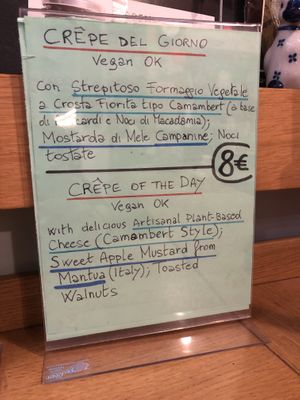 CRÊPE DEL GIORNO
Vegan OK
Con Strepitoso Formaggio Vegetale
a Crosta Fiorita tipo Camambert (a base
di Anacardi e Noci di Macadamia);
Mostarda di Mele Campanine; Noci
tostate
8€
CRÊPE OF THE DAY
Vegan OK
with delicious Artisanal Plant-Based
Cheese (Camambert Style);
Sweet Apple Mustard from
Mantua (Italy); Toasted
Walnuts